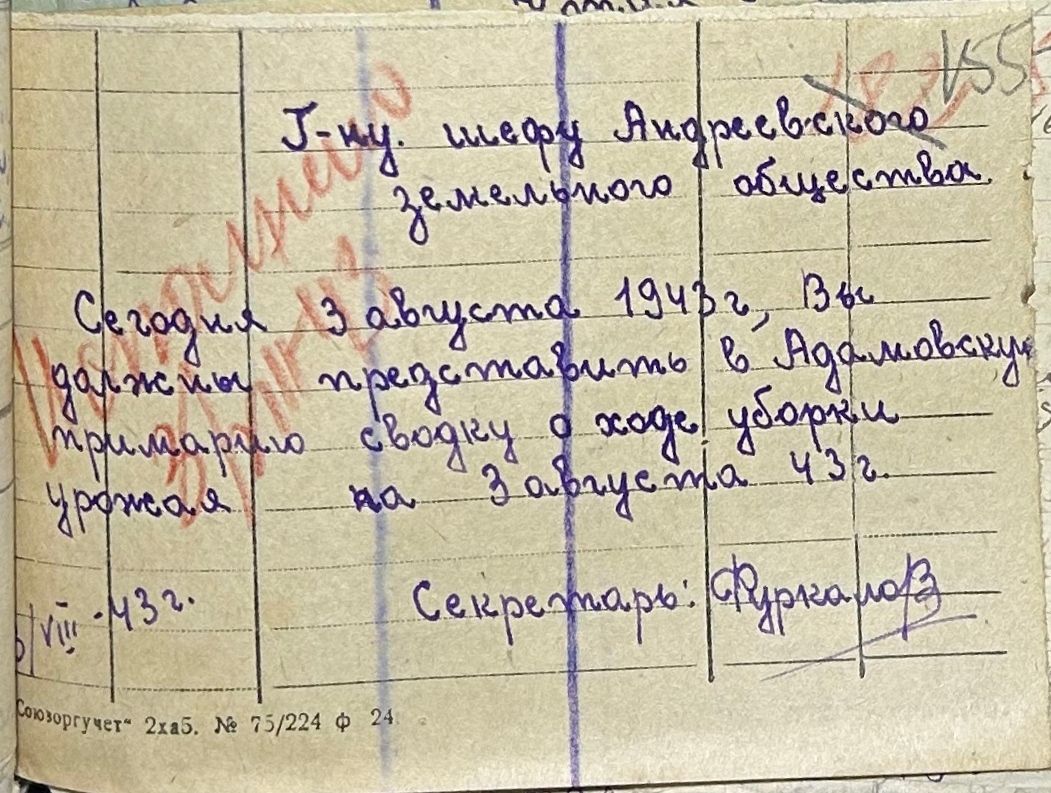 155
Г-ну. шефу Андреевского
земельного общества.
Сегодня 3 августа 1943 г, Вы
должны представить в Адамовскую
примарию сводку о ходе уборки
урожая на 3 августа 43 г.
VIII - 43 г.
Секретарь: Фуркало
Союзоргучет" 2ха5. № 75/224 Ф 24